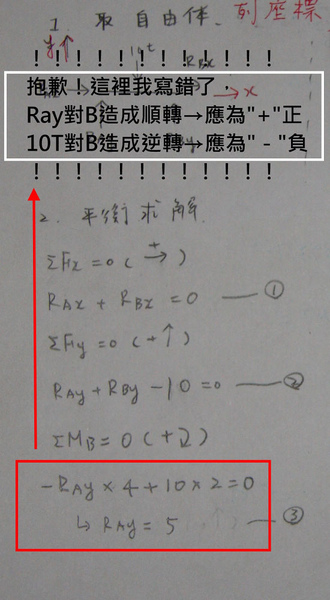 1. 取自由体. 列座標
！！！！！！！！！！！！！
抱歉！這裡我寫錯了.
Ray對B造成順轉→應為"+"正
10T對B造成逆轉→應為"-"負
！！！！！！！！！！！！！
2. 平衡求解.
ΣFx=0(+→)
RAx+RBx=0 — ①
ΣFy=0(+↑)
RAy+RBy-10=0 — ②
ΣMB=0(+↻)
-RAy×4+10×2=0
↳RAy=5 — ③